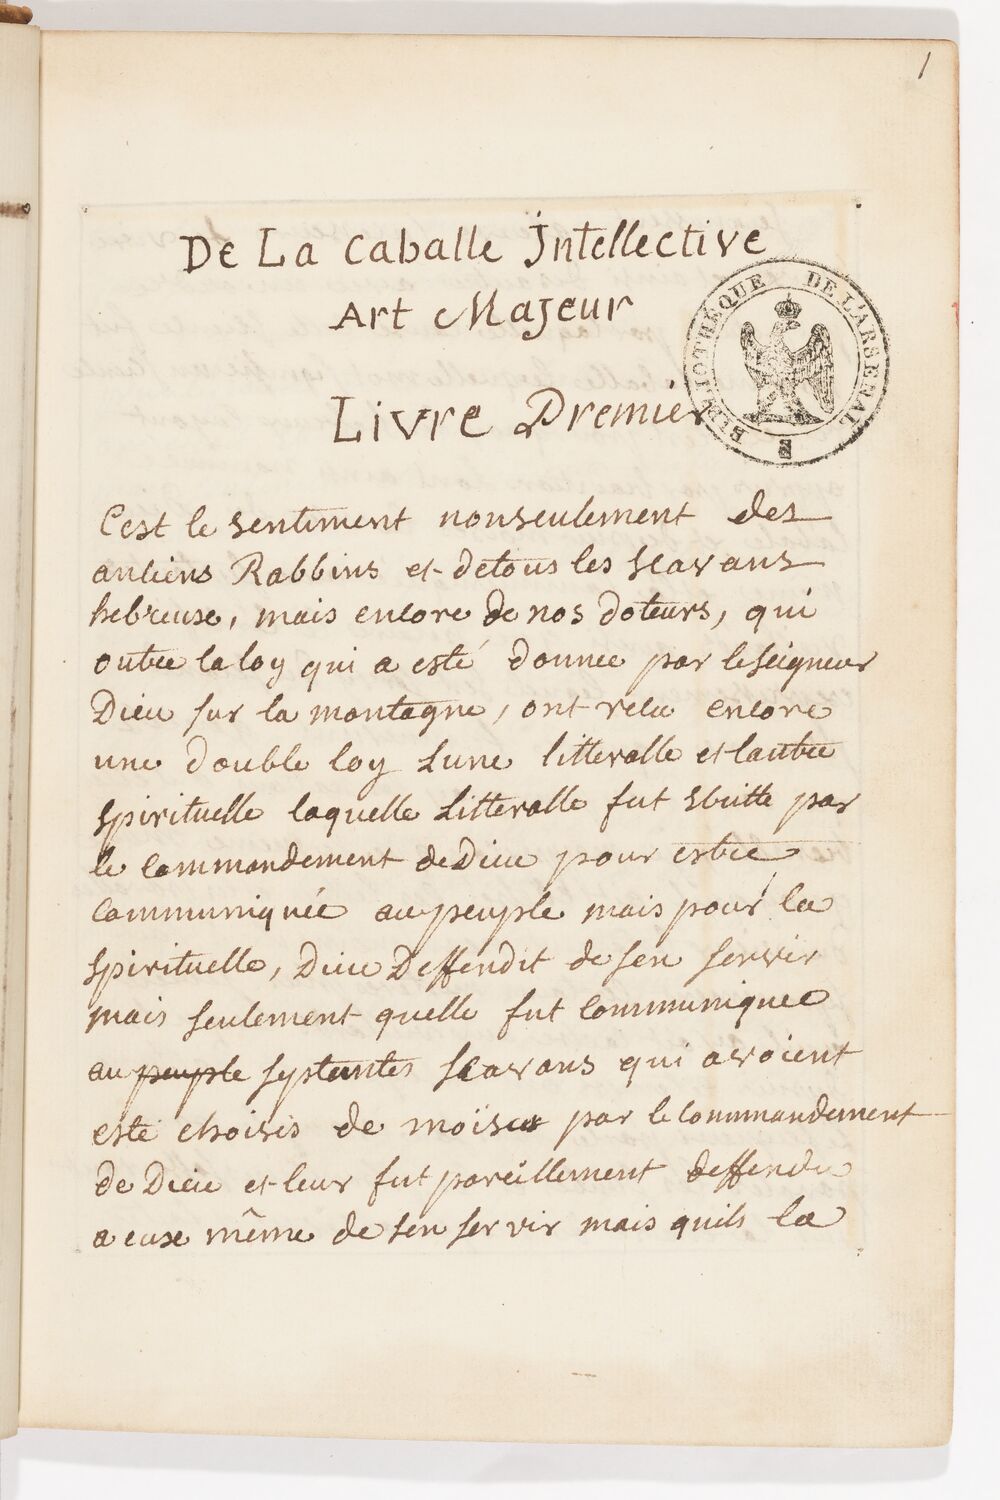 1
De La Caballe Jntellective
Art Majeur
BIBLIOTHÈQUE DE L'ARSENAL
Livre Premier
C'est le sentiment nonseulement des
anciens Rabbins et detous les scavans
hebreuse, mais encore de nos doteurs, qui
outre la loy qui a esté donnée par leseigneur
Dieu sur la montagne, ont relu encore
une double loy Lune litteralle et lautre
spirituelle laquelle Litteralle fut
par
le commandement deDieu pour estre
communiquée aupeuple mais pour la
spirituelle, Dieu Deffendit de sen servir
mais seulement quelle fut communiquee
au peuple septantes scavans qui avoient
esté choisis de moïse par lecommandement
de Dieu et leur fut pareillement deffendu
a euse même de sen servir mais quils la